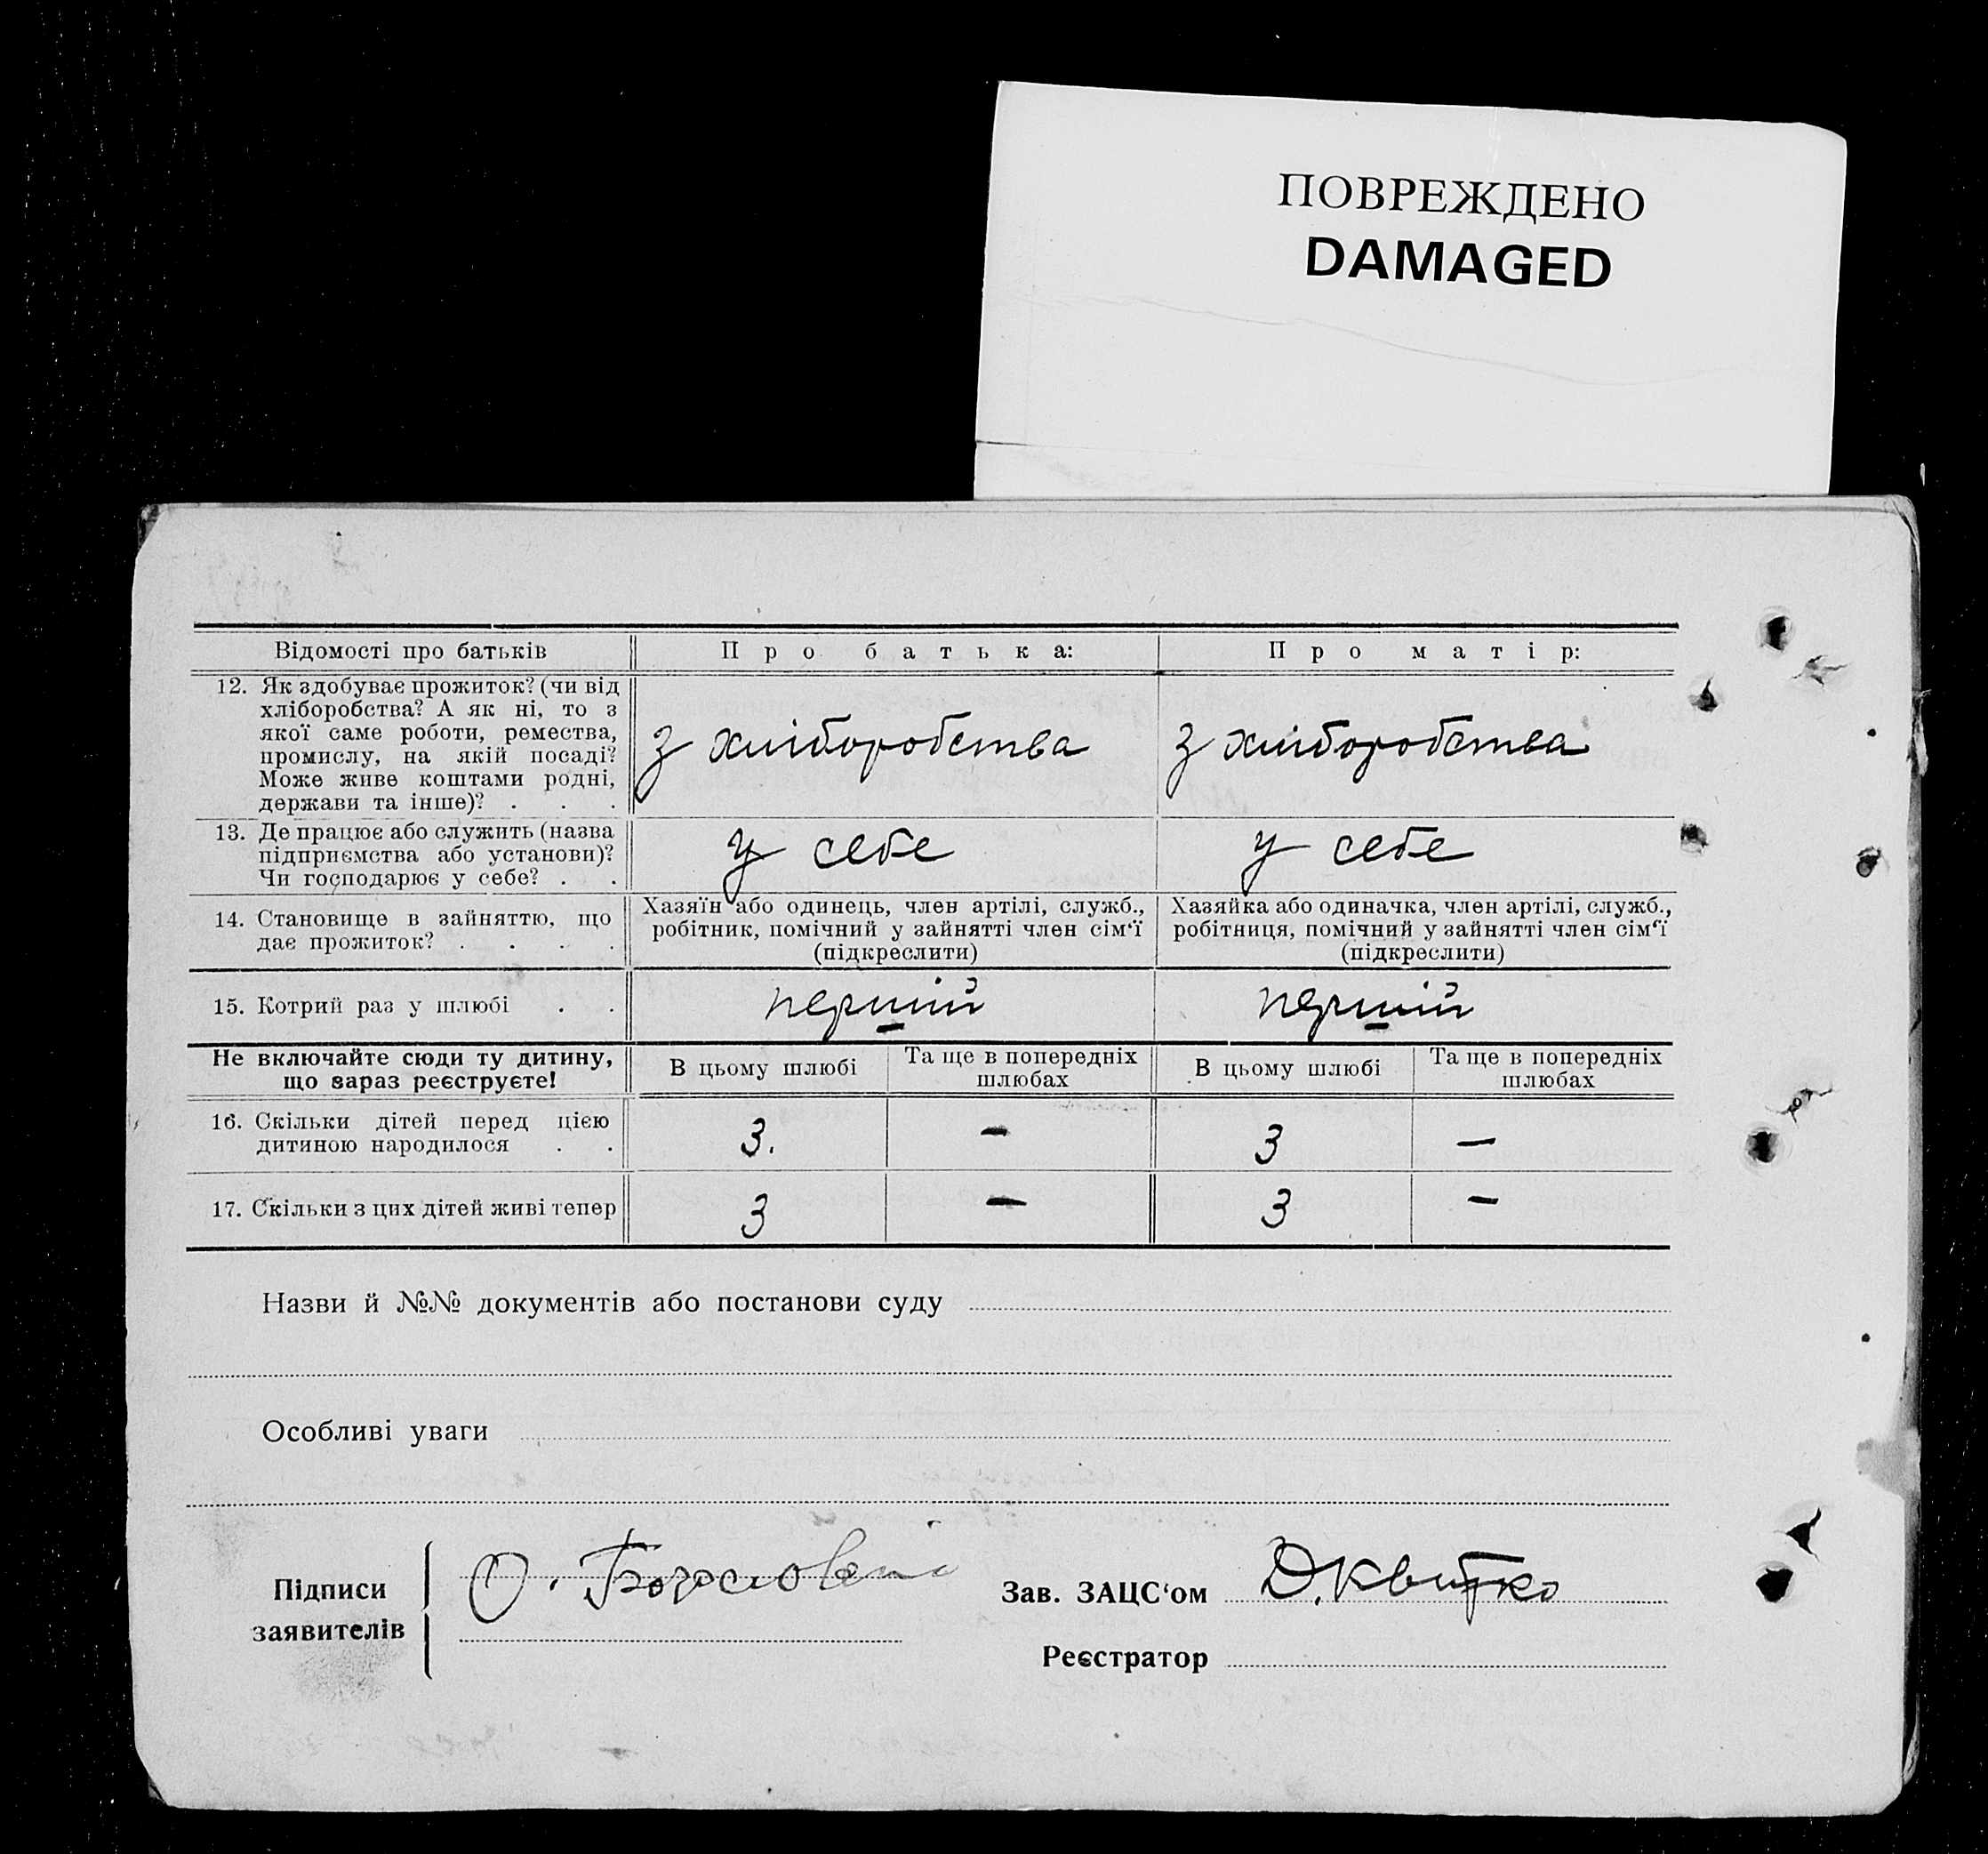 ПОВРЕЖДЕНО
DAMAGED
Відомості про батьків
Про батька:
Про матір:
12. Як здобуває прожиток? (чи від
хліборобства? А як ні, то з
якої саме роботи, ремества,
промислу, на якій посаді?
Може живе коштами родні,
держави та інше)? . . .
з хліборобства
з хліборобства
13. Де працює або служить (назва
підприємства або установи)?
Чи господарює у себе? . .
у себе
у себе
14. Становище в зайняттю, що
дає прожиток? . . . .
Хазяїн або одинець, член артілі, служб.,
робітник, помічний у зайнятті член сім‘ї
(підкреслити)
Хазяйка або одиначка, член артілі, служб.,
робітниця, помічний у зайнятті член сім‘ї
(підкреслити)
15. Котрий раз у шлюбі . .
перший
перший
Не включайте сюди ту дитину,
що зараз реєструєте!
В цьому шлюбі
Та ще в попередніх
шлюбах
В цьому шлюбі
Та ще в попередніх
шлюбах
16. Скільки дітей перед цією
дитиною народилося . .
3. – 3 –
17. Скільки з цих дітей живі тепер
3 – 3 –
Назви й №№ документів або постанови суду
Особливі уваги
Підписи
заявителів
О.
Зав. ЗАЦС‘ом Д. Квитко
Реєстратор